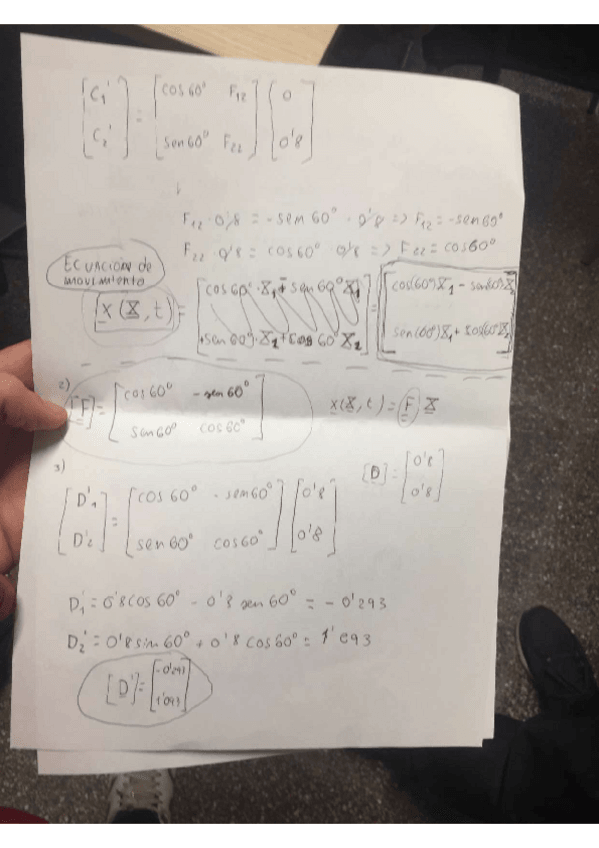 [C₁' C₂'] = [cos 60° F₁₂ ; sen 60° F₂₂] [0 ; 0'8]
F₁₂ · 0'8 = - sen 60° · 0'8 => F₁₂ = - sen 60°
F₂₂ · 0'8 = cos 60° 0'8 => F₂₂ = cos 60°
ECUACIONE de
movimiento
x(X, t) = [cos 60° · X₁ sen 60° X₁ ; + sen 60° · X₁ + cos 60° X₂] = [cos(60°) X₁ - sen(60°) X₂ ; sen(60°) X₁ + cos(60°) X₂]
2)
[F] = [cos 60° - sen 60° ; sen 60° cos 60°] x(X, t) = F X
3)
[D] = [0'8 ; 0'8]
[D'₁ ; D'₂] = [cos 60° - sen 60° ; sen 60° cos 60°] [0'8 ; 0'8]
D₁' = 0'8 cos 60° - 0'8 sen 60° = - 0'293
D₂' = 0'8 sin 60° + 0'8 cos 60° = 1'093
[D'] = [-0'293 ; 1'093]